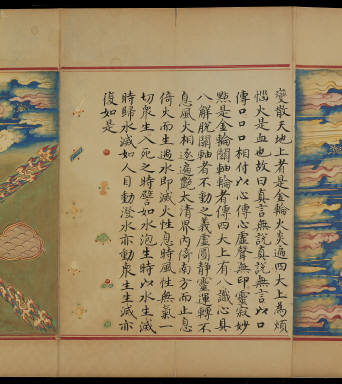 變散天地上者是金輪火炎過四大上為煩
惱火是血也故曰真言無說真說無言以口
傳口口口相付以心傳心虛聲無印靈寂妙
點是金輪關軸輪者傳四大上有八識心具
八解脫關軸者不動之義虛圓靜靈運轉不
息風火相逐遍艷太清界內倚南方而止息
倚火而生過水即滅火性息時風性無氣一
切衆生入死之時譬如水泡生時以水生滅
時歸水滅如人目動澄水亦動衆生生滅亦
復如是